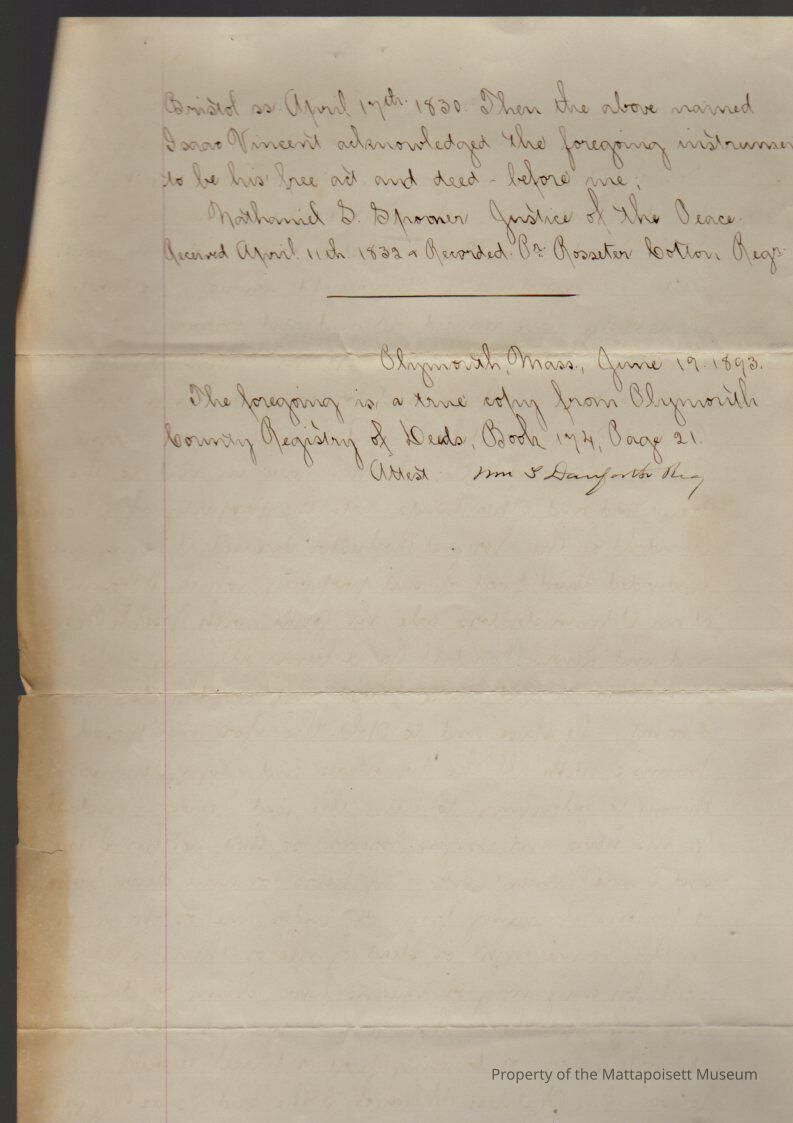 Bristol ss. April 17th. 1830. Then the above named
Isaac Vincent acknowledged the foregoing instrumen
to be his free act and deed - before me;
Nathaniel S. Spooner Justice of the Peace.
Received April 11th. 1832 & Recorded. Pr. Rosseter Cotton Regr.
Plymouth, Mass., June 19. 1893.
The foregoing is a true copy from Plymouth
County Registry of Deeds, Book 174, Page 21.
Attest Wm S Danforth Reg
Property of the Mattapoisett Museum